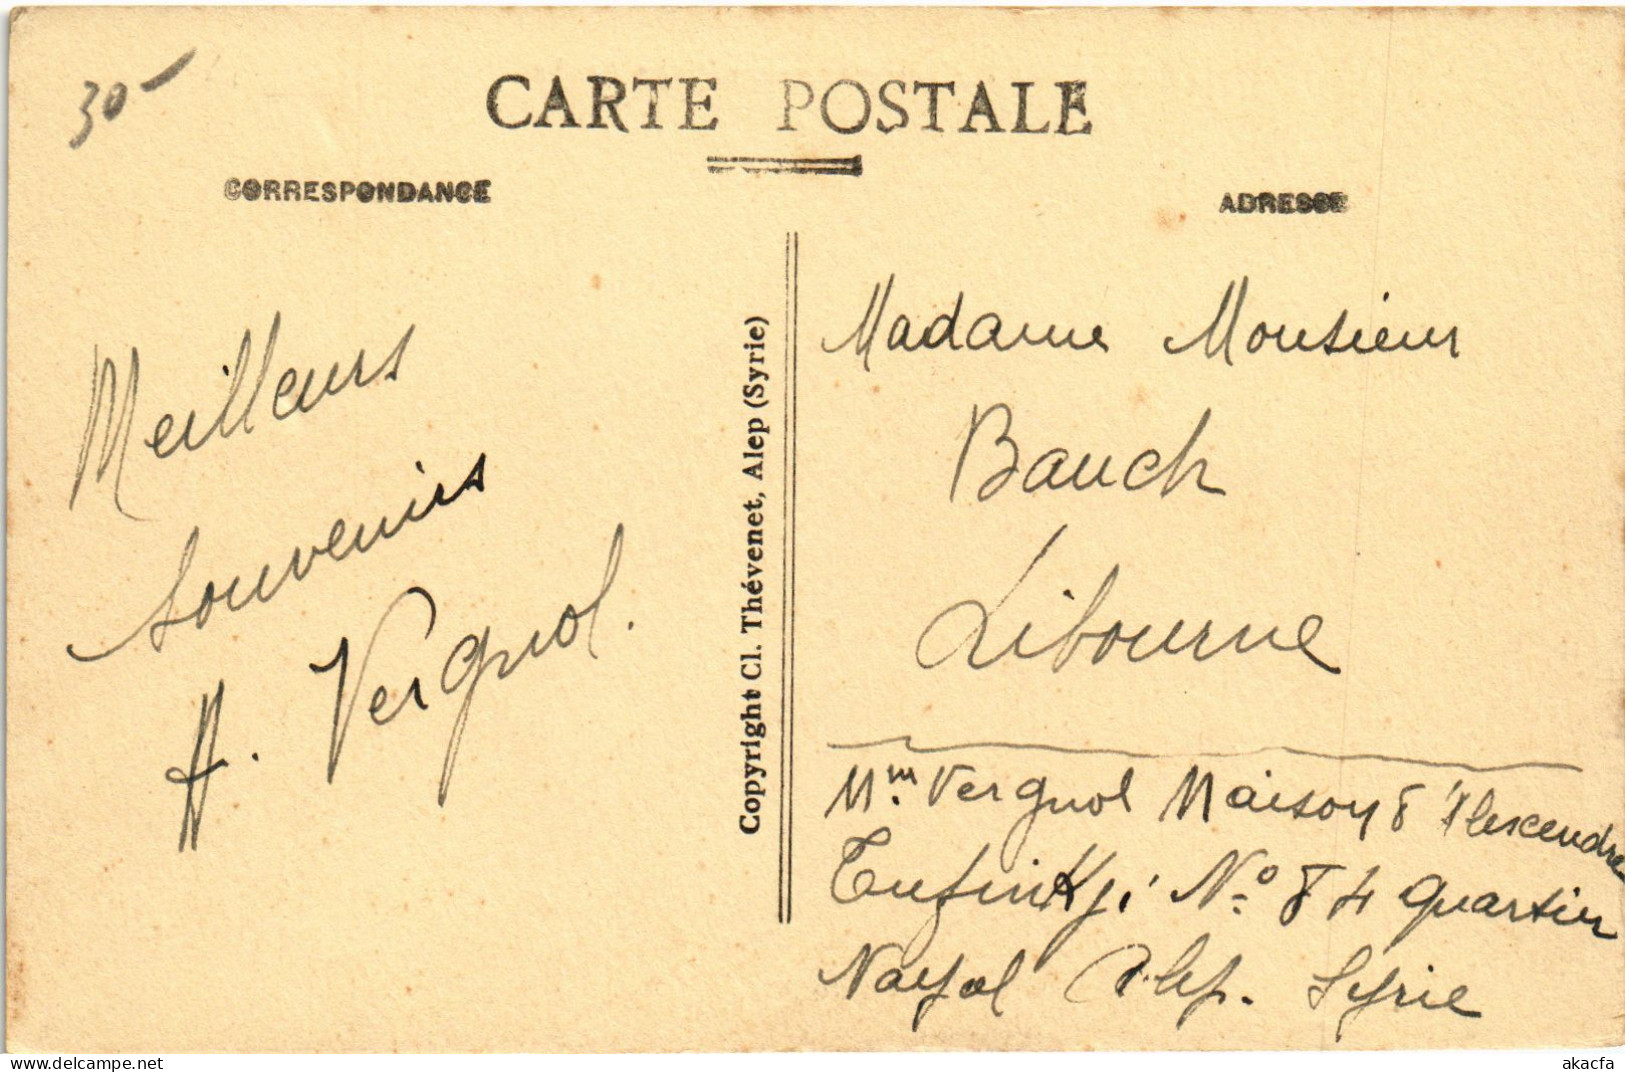 30-
CARTE POSTALE
CORRESPONDANCE
ADRESSE
Meilleurs
souvenirs
A. Vergnol.
Copyright Cl. Thévenet, Alep (Syrie)
Madame Monsieur
Bauch
Libourne
Mm. Vergnol Maison d'Alexcendre
Tufinkji N° 84 quartier
Nayal Alep. Syrie
akacfa